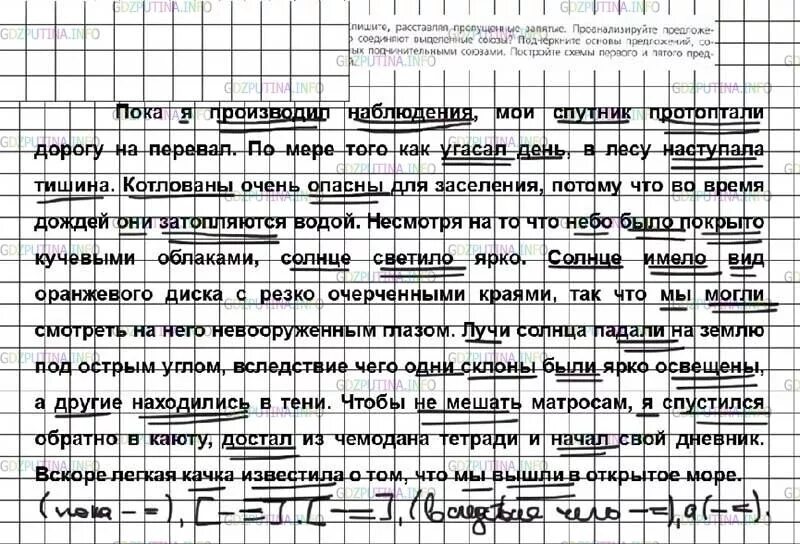 пишите, расставляя пропущенные запятые. Проанализируйте предложе-
о соединяют выделенные союзы? Подчеркните основы предложений, со-
ых подчинительными союзами. Постройте схемы первого и пятого пред-
Пока я производил наблюдения, мои спутник протоптали
дорогу на перевал. По мере того как угасал день, в лесу наступала
тишина. Котлованы очень опасны для заселения, потому что во время
дождей они затопляются водой. Несмотря на то что небо было покрыто
кучевыми облаками, солнце светило ярко. Солнце имело вид
оранжевого диска с резко очерченными краями, так что мы могли
смотреть на него невооруженным глазом. Лучи солнца падали на землю
под острым углом, вследствие чего одни склоны были ярко освещены,
а другие находились в тени. Чтобы не мешать матросам, я спустился
обратно в каюту, достал из чемодана тетради и начал свой дневник.
Вскоре легкая качка известила о том, что мы вышли в открытое море.
(пока – =), [– =]. [– =], (вследствие чего – =), а (– =).
GDZPUTINA.INFO